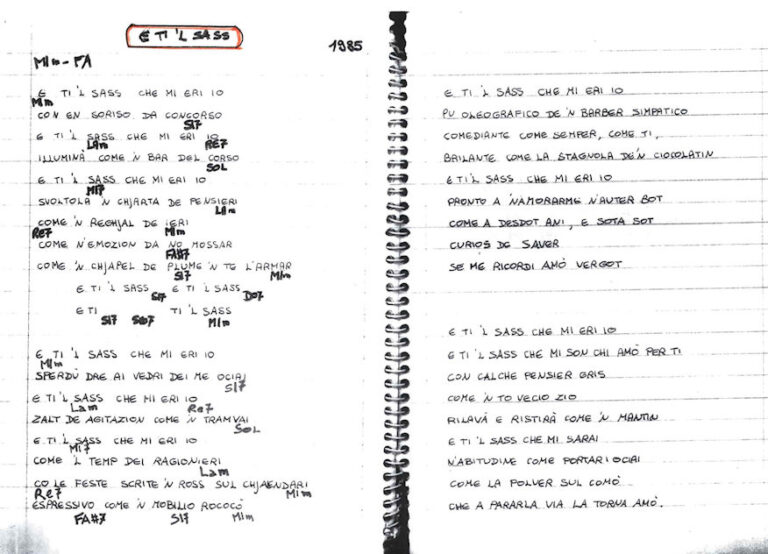 E TI 'L SASS
1985
MIm - FA
E TI 'L SASS CHE MI ERI IO
MIm
CON EN SORISO DA CONCORSO
SI7
E TI 'L SASS CHE MI ERI IO
LAm RE7
ILLUMINÀ COME 'N BAR DEL CORSO
SOL
E TI 'L SASS CHE MI ERI IO
MI7
SVOLTOLA 'N CHJARTA DE PENSIERI
LAm
COME 'N RECHJAL DE IERI
RE7 MIm
COME N'EMOZION DA NO MOSSAR
FA#7
COME 'N CHJAPEL DE PLUME 'N TE L'ARMAR
SI7 MIm
E TI 'L SASS E TI 'L SASS
SI7 DO7
E TI TI 'L SASS
SI7 MIm
E TI 'L SASS CHE MI ERI IO
MIm
SPERDÙ DRE AI VEDRI DEI ME OCIAI
SI7
E TI 'L SASS CHE MI ERI IO
Lam Re7
ZALT DE AGITAZION COME 'N TRAMVAI
SOL
E TI 'L SASS CHE MI ERI IO
MI7
COME 'L TEMP DEI RAGIONIERI
Lam
CO LE FESTE SCRITE 'N ROSS SUL CHJAENDARI
Re7 MIm
ESPRESSIVO COME 'N MOBILIO ROCOCÒ
FA#7 SI7 MIm
E TI 'L SASS CHE MI ERI IO
PU OLEOGRAFICO DE 'N BARBER SIMPATICO
COMEDIANTE COME SEMPER, COME TI,
BAILANTE COME LA STAGNOLA DE'N CIOCOLATIN
E TI 'L SASS CHE MI ERI IO
PRONTO A 'NAMORARME N'AUTER BOT
COME A DESDOT ANI, E SOTA SOT
CURIOS DE SAVER
SE ME RICORDI AMÒ VERGOT
E TI 'L SASS CHE MI ERI IO
E TI 'L SASS CHE MI SON CHI AMÒ PER TI
CON CALCHE PENSIER GRIS
COME 'N TO VECIO ZIO
RILAVÀ E RISTIRÀ COME 'N MANTIN
E TI 'L SASS CHE MI SARAI
N'ABITUDINE COME PORTAR I OCIAI
COME LA POLVER SUL COMÒ
CHE A PARARLA VIA LA TORNA AMÒ.